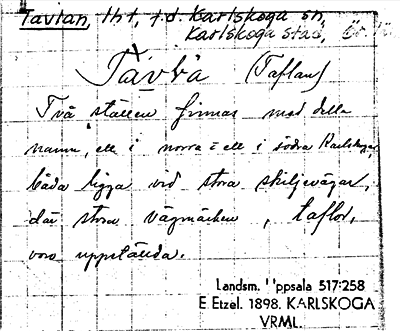 Tavlan, lht, t.d. Karlskoga sn,
Karlskoga stad, Ör. 
Tavla (Taflan)
Två ställen finnas med detta
namn, ett i norra o ett i södra Karlskoga,
båda ligga vid stora skiljevägar,
där stora vägmärken, taflor,
voro uppställda.
Landsm. Uppsala 517:258
E Etzel. 1898. KARLSKOGA
VRML.